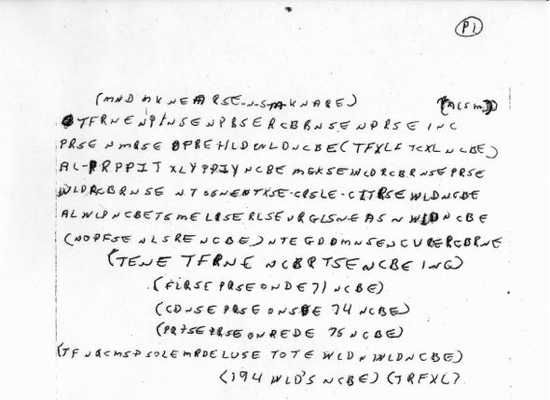 P1
(MND MKNEARSE-N-S-M-KNARE) (ACSM)
TFRNENPINSENPBSERCBRNSENPRSE INC
PRSENMRSEOPREHLDWLDNCBE(TFXLF TCXLNCBE)
AL-PRPPIT XLYPPIY NCBE MGKSEWLDRCBRNSEPRSE
WLDRCBRNSE NTSGNENTXSE-CRSLE-CITRSEWLDNCBE
ALWLDNCBETSMELRSERLSEURGLSNEASNWLDNCBE
(NOPFSENLSRENCBE)NTEGDDMNSENCURERCBRNE
(TENE TFRNE NCBRTSE NCBE ING)
(FLRSE PRSE ONDE 71 NCBE)
(CDNSE PRSE ONSDE 74 NCBE)
(PRTSE PRSE ONREDE 75 NCBE)
(TFNRCMSPSOLEMRDELUSE TOTE WLDN WLDNCBE)
(194 WLD'S NCBE)(TRFXL)